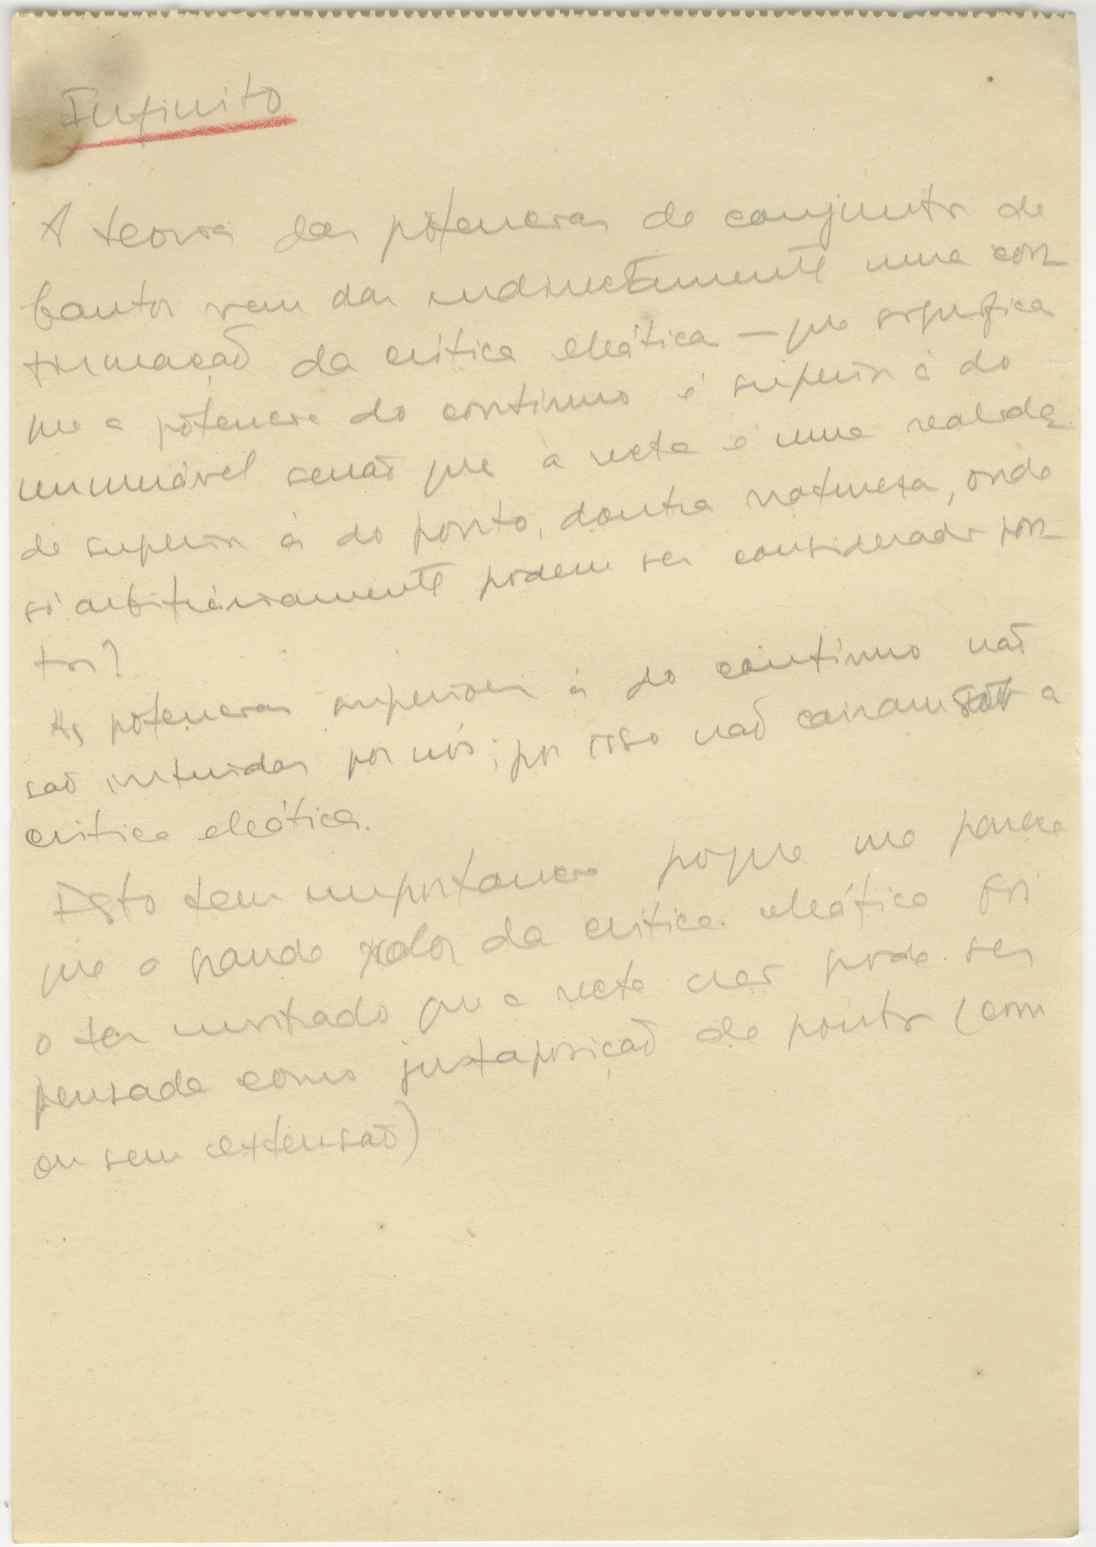 Infinito
A teoria das potencias de conjuntos de
Cantor vem dar indirectamente uma con-
firmação da critica eleática — que significa
que a potencia do continuo é superior à do
numerável senão que a recta é uma realida-
de superior à do ponto, doutra natureza, onde
só arbitráriamente podem ser considerados pon-
tos?
As potencias superiores à do contínuo não
são intuidas por nós; por isso não cairam sob a
critica eleática.
Isto tem importancia porque me parece
que o grande valor da critica eleática foi
o ter mostrado que a recta não pode ser
pensada como justaposição de pontos (com
ou sem extensão)